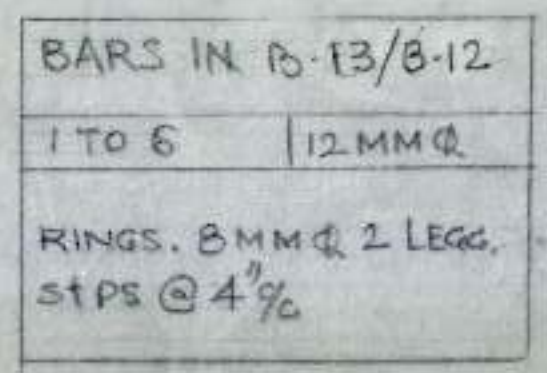 BARS IN B-13/B-12
1 TO 6 12 MM ⌀
RINGS. 8 MM ⌀ 2 LEGG.
StPS @ 4" c/c